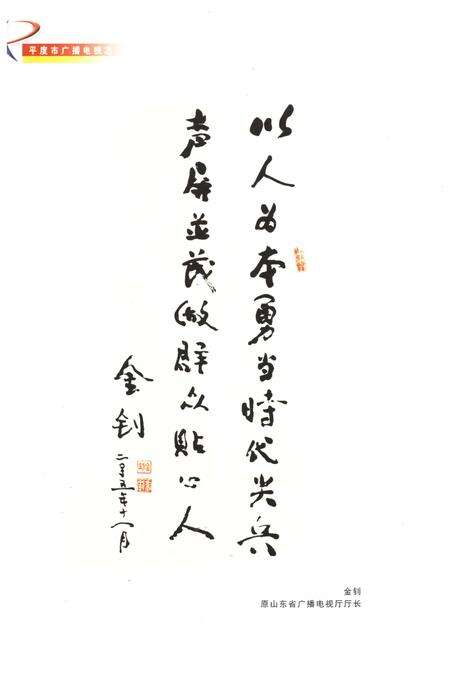 平度市广播电视志
以人为本勇当時代尖兵
声屏並茂做群众貼心人
金钊
二〇〇五年十一月
金钊
原山东省广播电视厅厅长